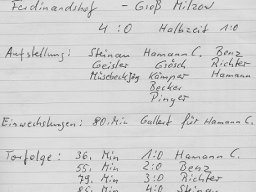 Ferdinandshof - Groß Milzow
4 : 0 Halbzeit 1:0
Aufstellung: Steinau Hamann C. Benz
Geisler Grösch Richter
Müsebeck Jörg Kämper Hamann
Becker
Pinger
Einwechslungen: 80. Min Gallert für Hamann C.
Torfolge: 36. Min 1:0 Hamann C.
55. Min 2:0 Benz
79. Min 3:0 Richter
85. Min 4:0 Steinau